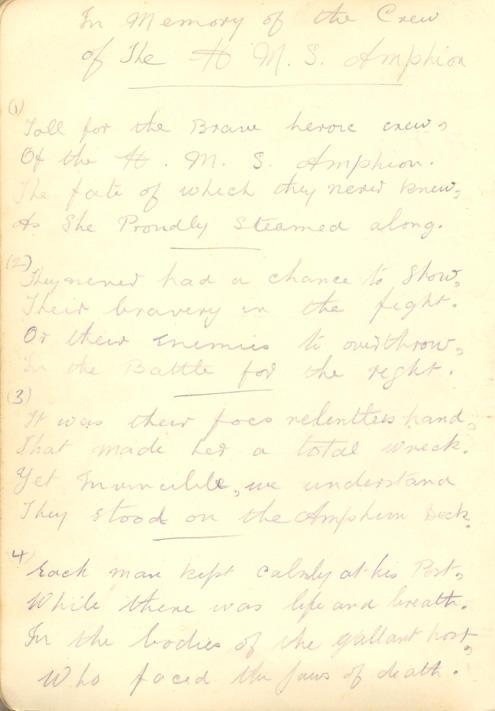 In Memory of the Crew
of The H. M. S. Amphion
(1)
Toll for the Brave heroic crew,
Of the H. M. S. Amphion.
The fate of which they never knew,
As She Proudly Steamed along.
(2)
They never had a chance to show,
Their bravery in the fight.
Or their Enemies to overthrow,
In the Battle for the right.
(3)
It was their foes relentless hand,
That made her a total wreck.
Yet Invincible, we understand
They stood on the Amphion Deck.
4
Each man kept calmly at his Post,
While there was life and breath.
In the bodies of the gallant host,
Who faced the jaws of death.